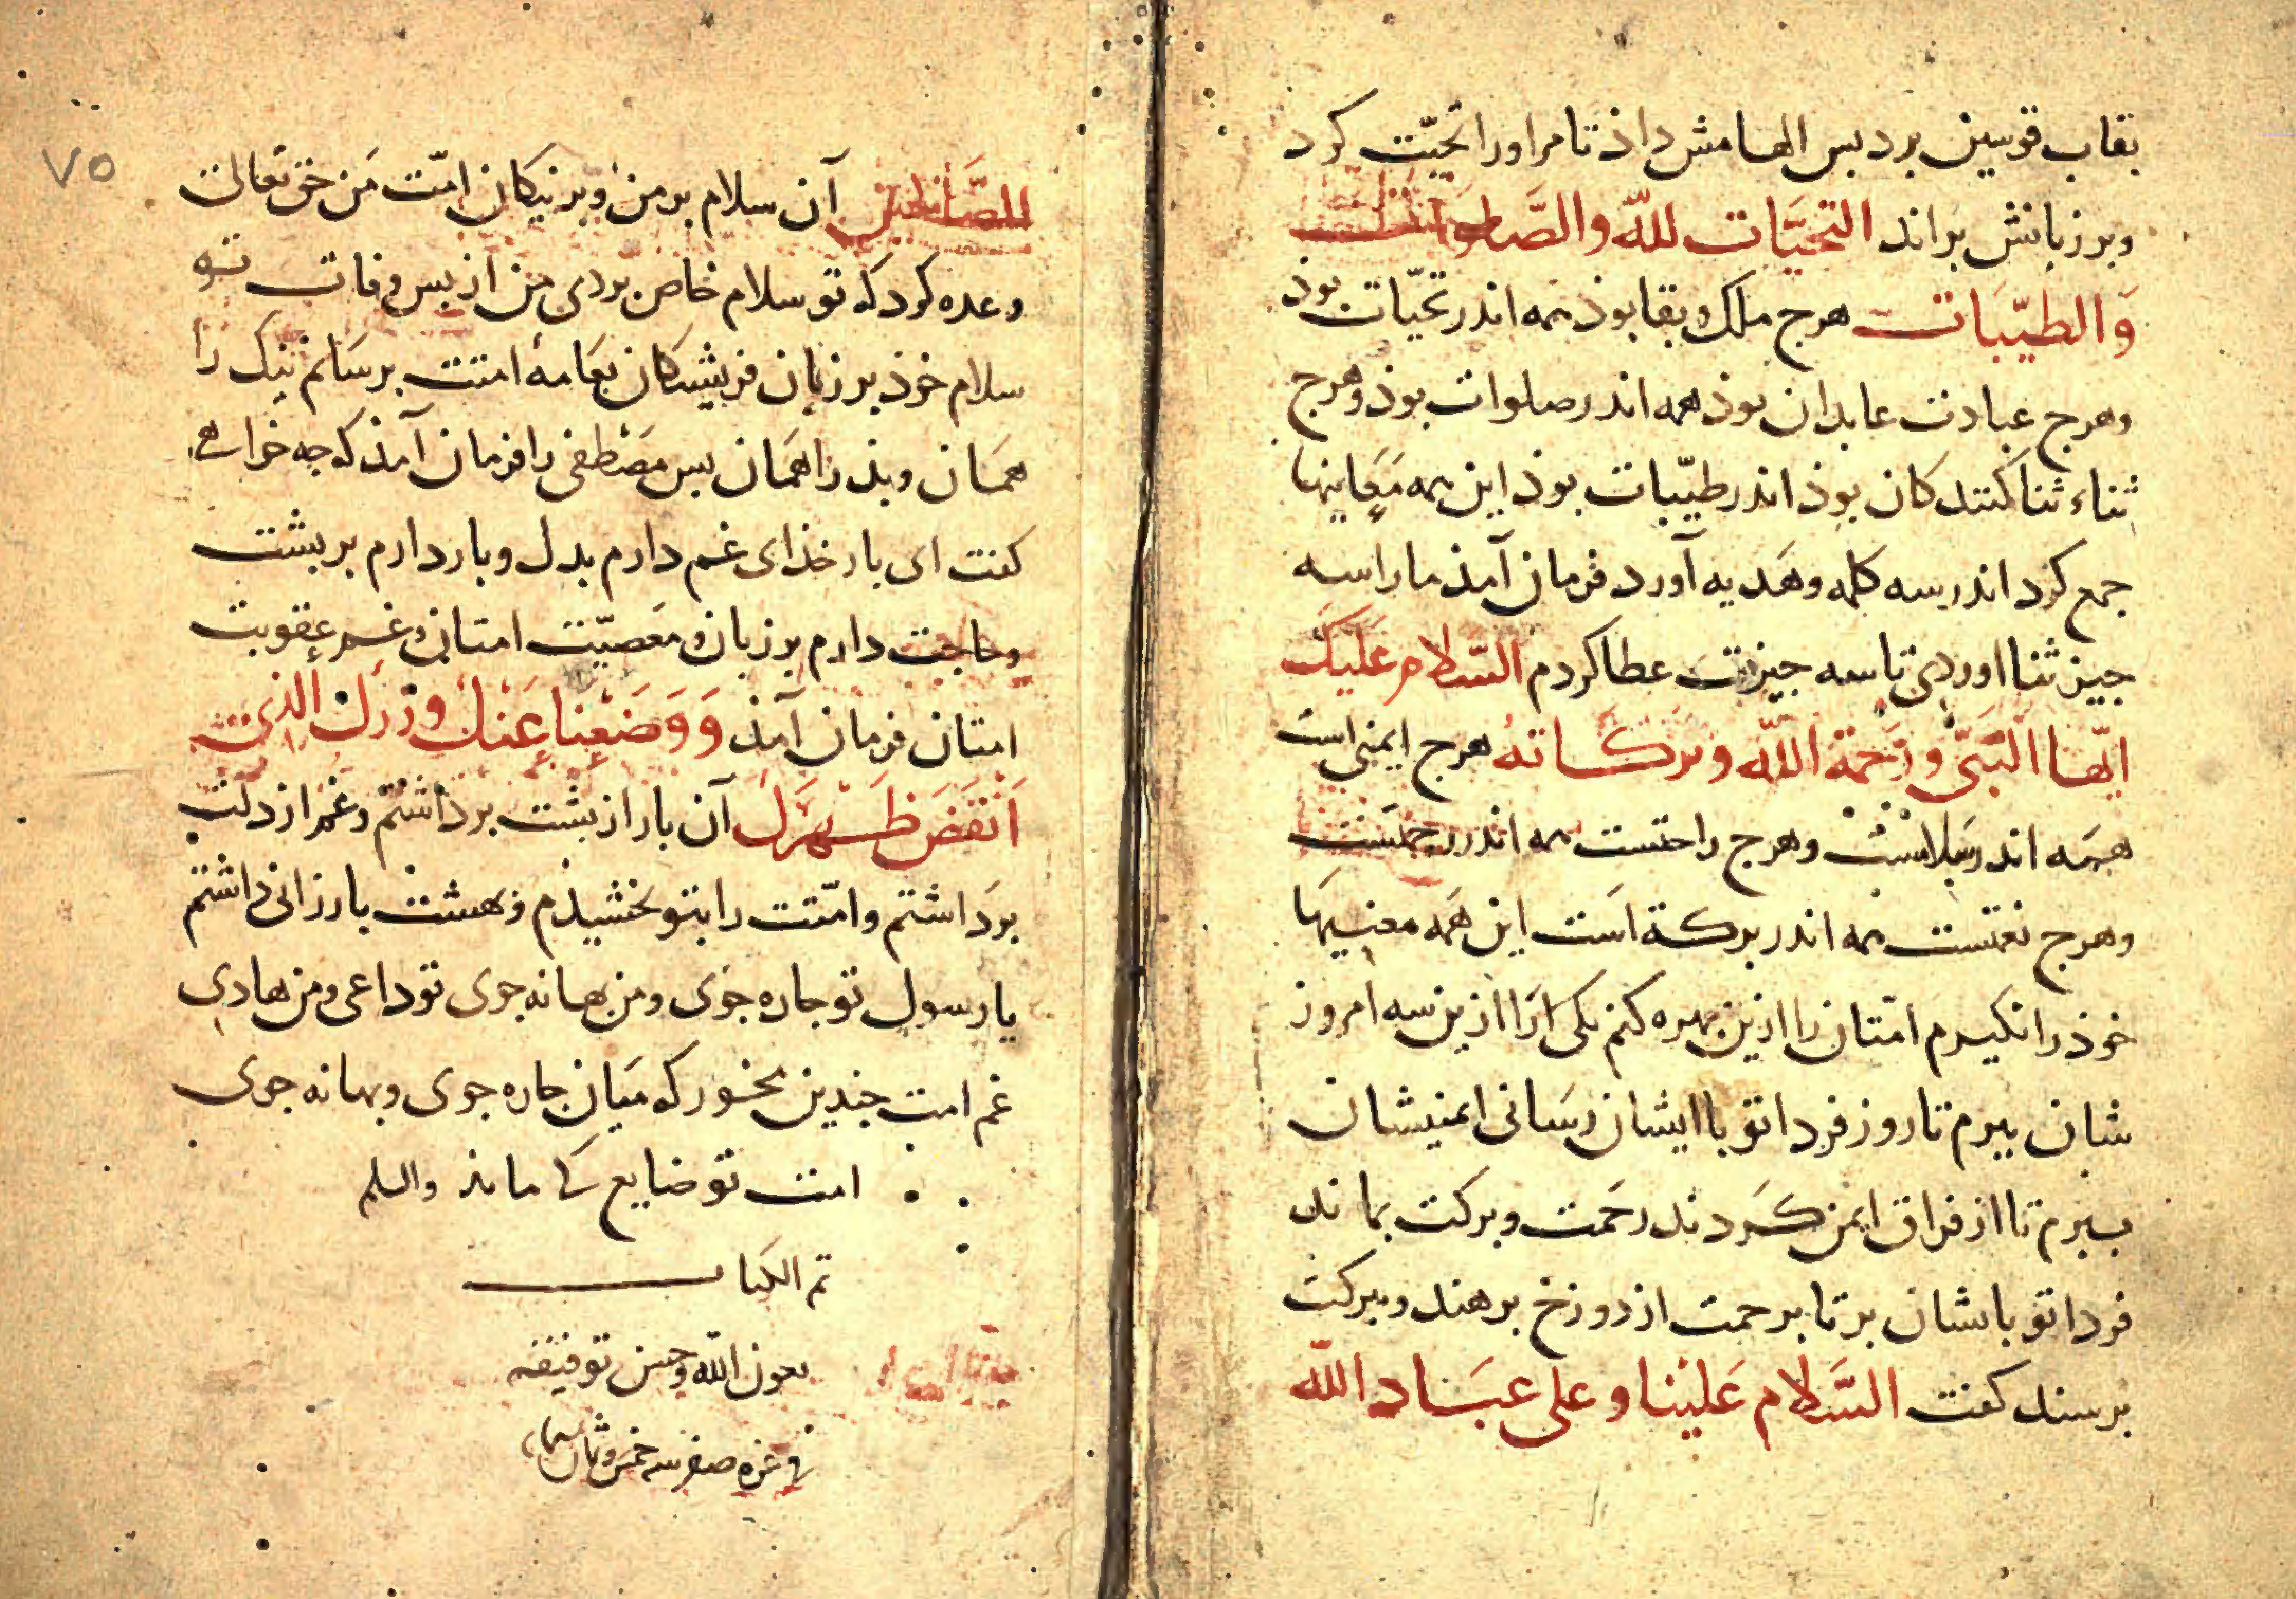 بقاب قوسین برد بس الهامش داذ تا مر اورا تحیّت کرد
وبر زبانش براند التحیَّات للّه والصَّلوات
وَالطیّبَات هرج ملک وبقا بوذ همه اندر تحیّات بوذ
وهرج عبادت عابدان بوذ همه اندر صلوات بوذ وهرج
ثناء ثنا کنندکان بوذ اندر طیّبات بوذ این همه مَعَانیها
جمع کرد اندر سه کلمه وهَدیه آورد فرمان آمذ ما را سه
جیز ثنا اوردی تا سه جیزت عطا کردم السّلام عَلَیکَ
ایّها النّبیّ ورَحمة اللّه وبرکاته هرج ایمنی است
همَه اندر سَلامست وهرج راحتست همه اندر رحمتست
وهرج نعمتست همه اندر برکة است این همه معنیها
خوذ را نکیرم امّتان را ازین بهره کنم یکی ازا ازین سه امروز
شان ببرم تا روز فردا تو با ایشان رسَانی ایمنیشان
ببرم تا از فراق ایمن کردند رحَمت وبرکت بماند
فردا تو باشان بر تا برحمت از دوزخ برهند وببرکت
برسند کفت السَّلام عَلیْنا وعلی عبَاد اللّه
۷۵
الصَّالحین آن سلام بر من وبر نیکان امّت مَن حق تعالی
وعده کرد که تو سلام خاص بردی من از بس وفات تو
سلام خوذ بر زبان فریشتکان بعَامهٔ امتت برسَانم نیک را
همَان وبذ را همَان بس مصَطفی را فرمان آمذ که جه خواهی
کفت ای بار خذای غم دارم بدل وبار دارم بر بشت
وحاجت دارم بر زبان معَصیّت امتان وغم عقوبت
امتان فرمان آمذ وَوَضَعْنا عَنْكَ وِزْرَكَ الذی
اَنْقَضَ ظَهْرَكَ آن بار از بشت برداشتم وغم از دلت
برَداشتم وامّتت را بتو بخشیذم وبهشت بارزانی داشتم
یا رسول تو جاره جوی ومن بهانه جوی تو داعی ومن هادی
غم امت جندین مخور که میَان جاره جوی وبهانه جوی
امت تو ضایع کی ماند والسلم
تم الکتاب
بعون اللّه وحسن توفیقه
فی غره صفر سنه خمس وثمان